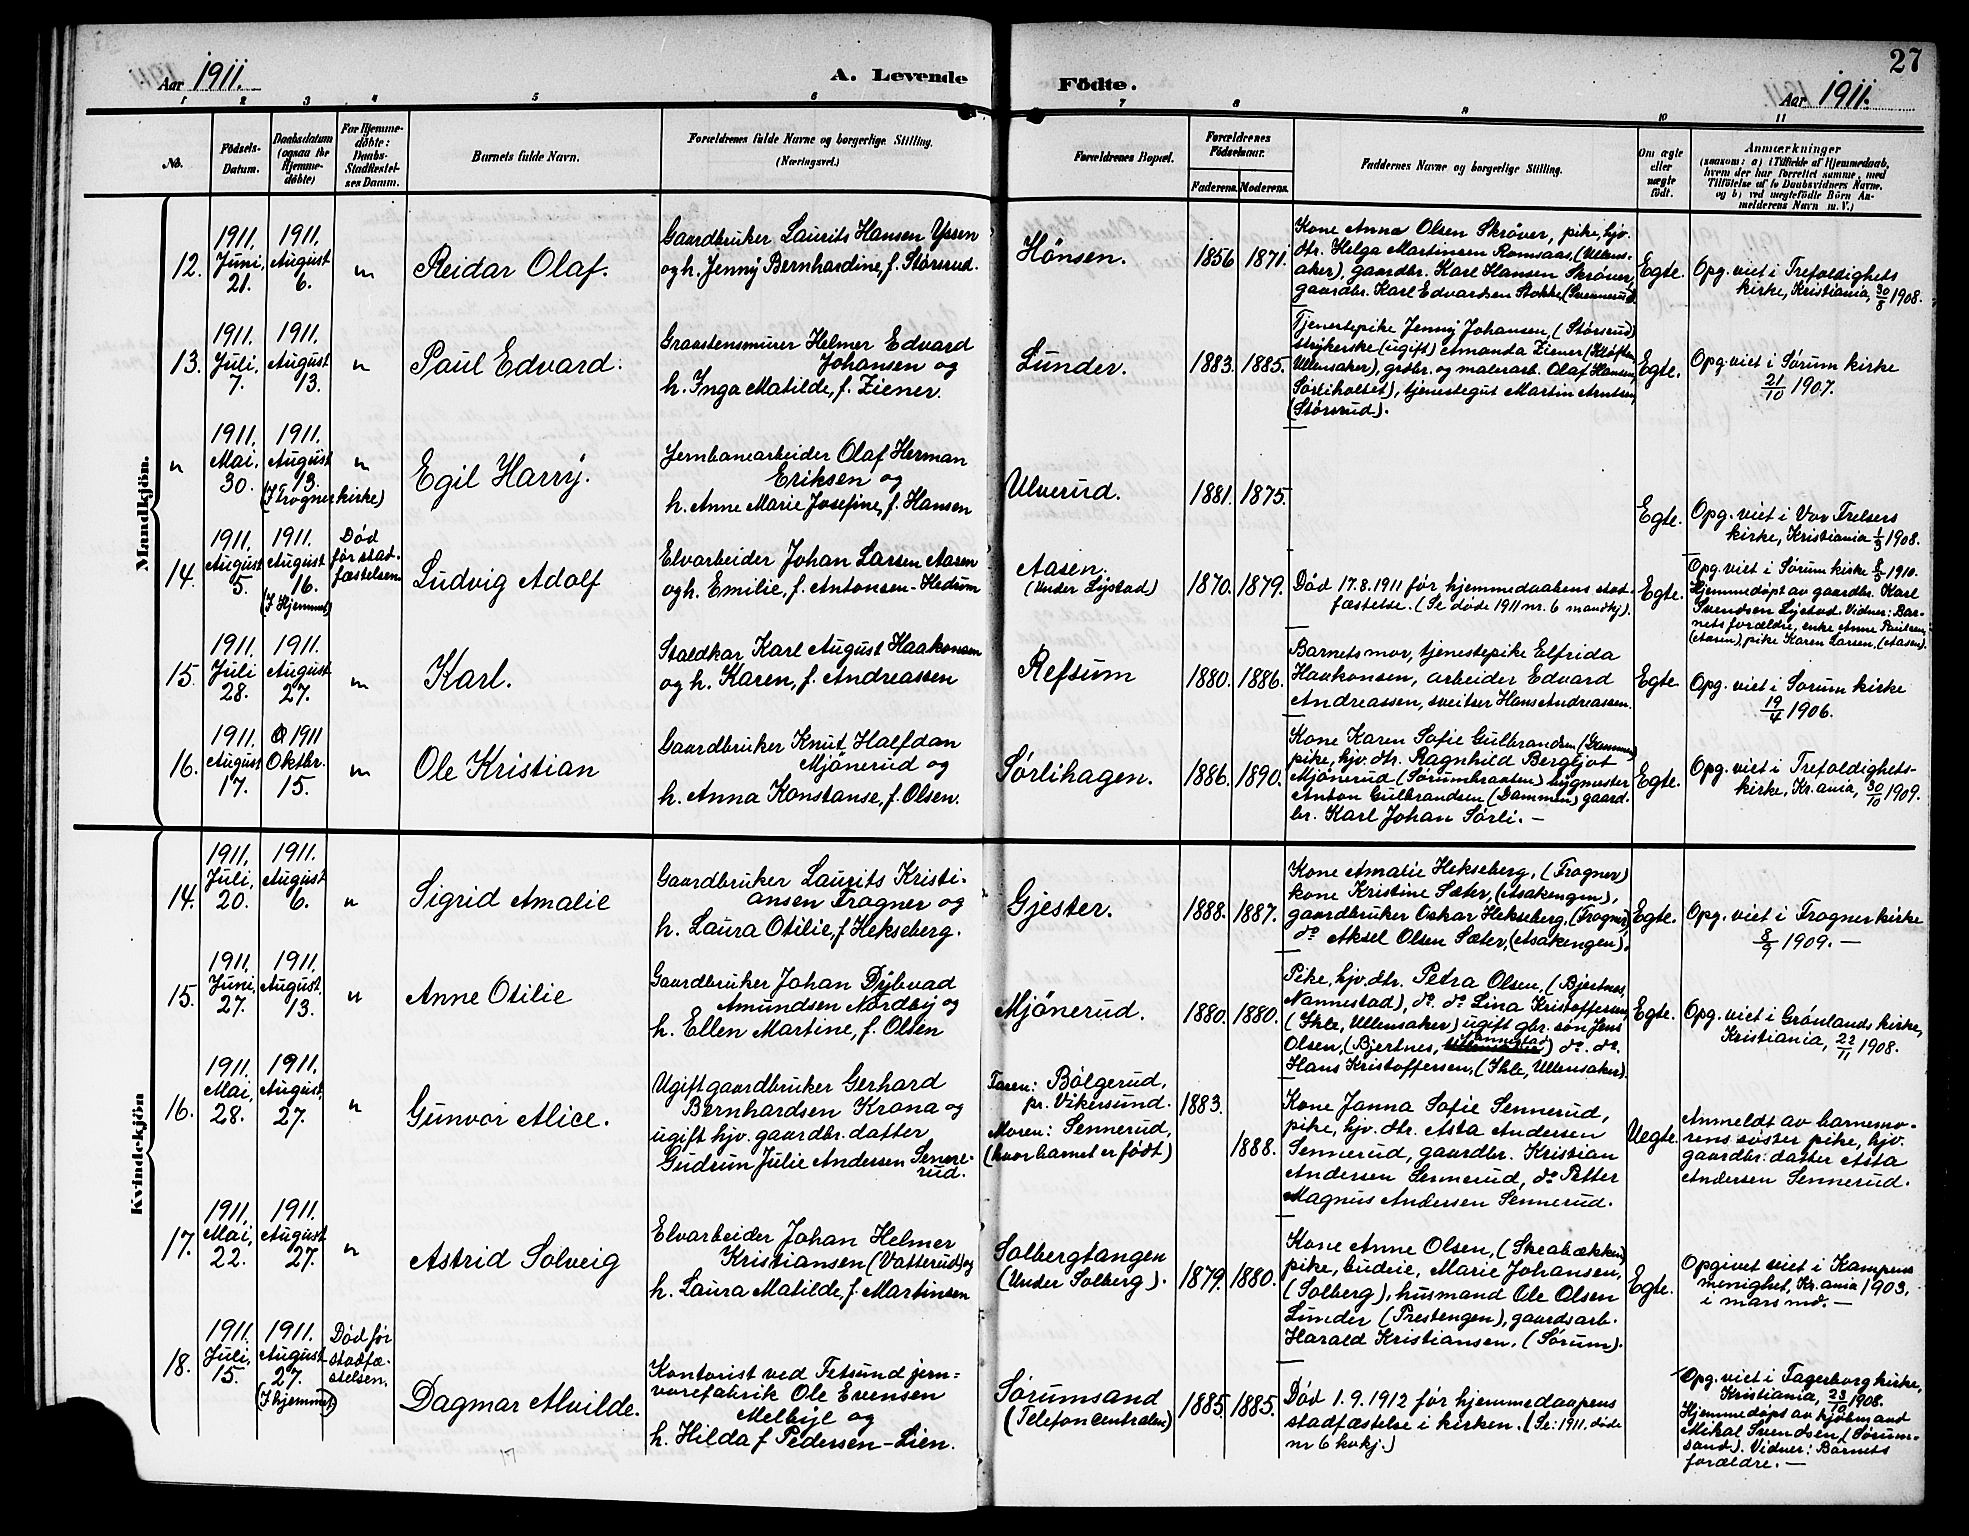 27
Aar 1911. A. Levende Födte. Aar 1911.
1 2 3 4 5 6 7 8 9 10 11
No.
Födsels-
Datum.
Daabsdatum
(ogsaa for
Hjemme-
döbte)
For Hjemme-
döbte:
Daabs-
Stadfæstel-
ses Datum.
Barnets fulde Navn.
Forældrenes fulde Navne og borgerlige Stilling.
(Næringsvei.)
Forældrenes Bopæl.
Forældrenes
Födselsaar.
Faderens. Moderens.
Faddernes Navne og borgerlige Stilling.
Om ægte
eller
uægte
födt.
Anmærkninger
(saasom: a) i Tilfælde af Hjemmedaab,
hvem der har forrettet samme, med
Tilföielse af to Daabsvidners Navne,
og b) ved uægtefödte Börn An-
melderens Navn m. V.)
Mandkjön.
12.
1911.
Juni,
21.
1911.
August
6.
"
Reidar Olaf.
Gaardbruker Laurits Hansen Yssen
og h. Jenny Bernhardine, f. Størsrud.
Hönsen.
1856 1871.
Kone Anna Olsen Skröver, pike, hjv.
dtr. Helga Martinsen Romsaas, (Ullens-
aker), gaardbr. Karl Hansen Skröver,
gaardbr. Karl Edvardsen Stokke (Svennerud)
Egte.
Opg. viet i Trefoldighets
kirke, Kristiania, 30/8 1908.
13.
1911.
Juli,
7.
1911.
August
13.
"
Paul Edvard.
Graastensmurer Helmer Edvard
Johansen og
h. Inga Matilde, f. Ziener.
Lunder.
1883. 1885.
Tjenestepike Jenny Johansen, (Størsrud)
strykerske (ugift) Amanda Ziener (Kløften
Ullensaker), grdbr. og malerarb. Olaf Hansen,
Sørliholtet), tjenestegut Martin Arntsen,
(Størsrud).
Egte.
Opg. viet i Sørum kirke
21/10 1907.
"
1911.
Mai,
30.
1911.
August
13.
(I Frogner kirke)
"
Egil Harry.
Jernbanearbeider Olaf Herman
Eriksen og
h. Anne Marie Josefine, f. Hansen
Ulverud.
1881. 1875.
Egte.
Opg. viet i Vor Frelsers
kirke, Kristiania 1/3 1908.
14.
1911.
August
5.
1911.
August
16.
(I Hjemmet)
Død
før stad-
fæstelsen
Ludvig Adolf
Elvarbeider Johan Larsen Aasen
og h. Emilie, f. Antonsen-Hedum
Aasen.
(Under Lystad)
1870. 1879.
Død 17.8.1911 før hjemmedaabens stad-
fæstelse. (Se døde 1911 nr. 6 mandkj).
Egte.
Opg. viet i Sørum kirke 8/5 1910.
Hjemmedøpt av gaardbr. Karl
Svendsen Lystad. Vidner: Bar-
nets forældre, enke Anne Paulsen,
(Aasen), pike Karen Larsen, (Aasen).
15.
1911.
Juli
28.
1911.
August
27.
"
Karl.
Staldkar Karl August Haakonsen
og h. Karen, f. Andreassen
Refsum
1880. 1886.
Barnets mor, tjenestepike Elfrida
Haakonsen, arbeider Edvard
Andreassen, sveitser Hans Andreassen.
Egte.
Opg. viet i Sørum kirke
19/4 1906.
16.
1911.
August
17.
1911
Oktbr.
15.
"
Ole Kristian
Gaardbruker Knut Halfdan
Mjönerud og
h. Anna Konstanse, f. Olsen.
Sørlihagen.
1886. 1890.
Kone Karen Sofie Gulbrandsen (Dammen)
pike, hjv. dtr. Ragnhild Bergljot
Mjönerud (Sørumbraaten) bygmester
Anton Gulbrandsen (Dammen) gaard-
br. Karl Johan Sørli. —
Egte.
Opg. viet i Trefoldighets-
kirke, Kr.ania, 30/10 1909.
Kvindekjön
14.
1911.
Juli,
20.
1911.
August
6.
"
Sigrid Amalie
Gaardbruker Laurits Kristi-
ansen Frogner og
h. Laura Otilie, f Hekseberg.
Gjester.
1888. 1887.
Kone Amalie Hekseberg, (Frogner)
kone Kristine Sæter, (Asakengen),
gaardbruker Oskar Hekseberg, (Frogner)
do Aksel Olsen Sæter, (Asakengen).
Egte.
Opg. viet i Frogner kirke
8/9 1909. —
15.
1911.
Juni,
27.
1911.
August,
13.
"
Anne Otilie
Gaardbruker Johan Dybvad
Amundsen Nordby og
h. Ellen Martine, f. Olsen
Mjönerud.
1880. 1880.
Pike, hjv. dtr. Petra Olsen, (Bjertnes,
Nannestad), do. do Lina Kristoffersen,
(Ihle, Ullensaker) ugift gbr. søn Jens
Olsen, (Bjertnes, Nannestad) do. do.
Hans Kristoffersen, (Ihle, Ullensaker).
Egte.
Opg. viet i Grönlands kirke,
Kristiania, 22/11 1908.
16.
1911.
Mai,
28.
1911.
August,
27.
"
Gunvor Alice.
Ugift gaardbruker Gerhard
Bernhardsen Krona og
ugift hjv. gaardbr. datter
Gudrun Julie Andersen Senne-
rud.
Faren: Bölgerud,
pr. Vikersund.
Moren: Sennerud,
(hvor barnet er født)
1883.
1888.
Kone Janna Sofie Sennerud,
pike, hjv. dtr. Asta Andersen
Sennerud, gaardbr. Kristian
Andersen Sennerud, do Petter
Magnus Andersen Sennerud.
Uegte.
Anmeldt av barnemo-
rens søster pike, hjv.
gaardbr. datter Asta
Andersen Sennerud.
17.
1911.
Mai,
22.
1911.
August
27.
"
Astrid Solveig
Elvarbeider Johan Helmer
Kristiansen (Vatterud) og
h. Laura Matilde, f. Martinsen
Solbergtangen
(Under Solberg).
1879. 1880.
Kone Anne Olsen, (Skeabækken)
pike, budeie, Marie Johansen,
(Solberg), husmand Ole Olsen
Lunder (Prestengen), gaardsarb.
Harald Kristiansen, (Sørum).
Egte.
Opgivet viet i Kampens
menighet, Kr.ania 1903,
i mars md. —
18.
1911.
Juli,
15.
1911.
August
27.
(I hjemmet)
Død før
stadfæ-
stelsen.
Dagmar Alvilde.
Kontorist ved Fetsund jern-
varefabrik Ole Evensen
Melbye og
h. Hilda f Pedersen-Lien.
Sørumsand
(Telefoncentralen)
1885. 1885.
Død 1.9.1912 før hjemmedaapens
stadfæstelse i kirken. (Se: 1911. døde
nr 6 kvkj.)
Opg. viet i Fagerborg kirke,
Kristiania, 23/10 1908.
Hjemmedøpt av kjöbmand
Mikal Svendsen, (Sørum-
sand). Vidner: Barnets
forældre. —